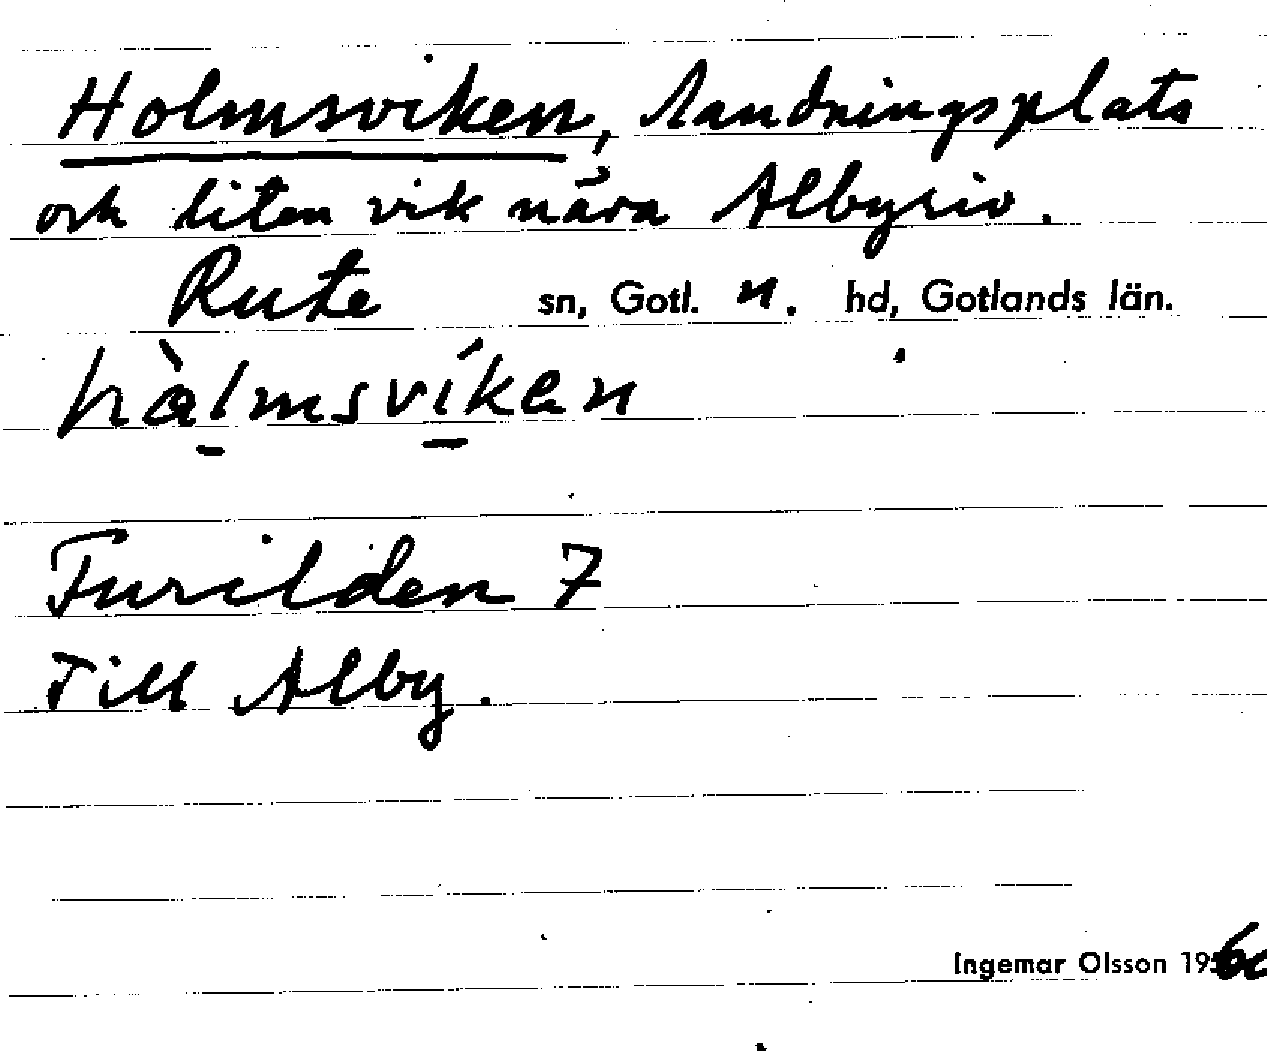 Holmsviken, landningsplats
och liten vik nära Albyriv.
Rute sn, Gotl. n. hd, Gotlands län.
hàlmsvíken
Furilden 7
Till Alby.
Ingemar Olsson 1960